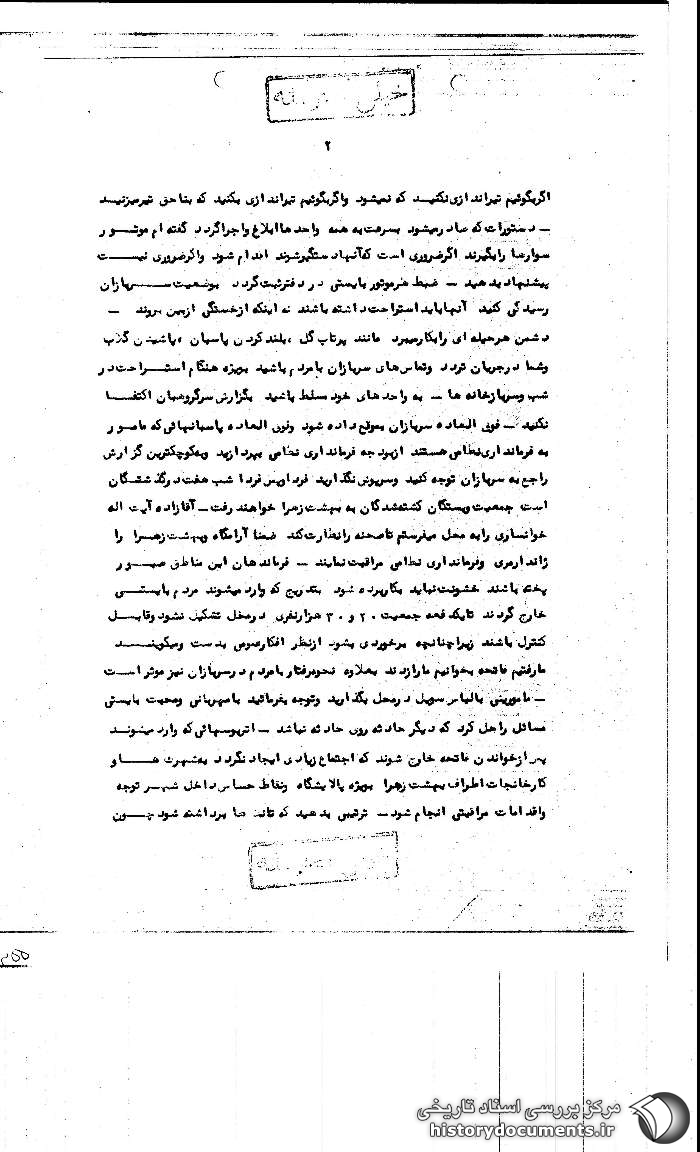 خیلی محرمانه
۲
اگر بگوئیم تیراندازی نکنید که نمیشود واگر بگوئیم تیراندازی بکنید که بناحق تیر میزنید
ـ دستورات که صادر میشود بسرعت به همه واحدها ابلاغ واجرا گردد گفته ام موتور
سوارها را بگیرند اگر ضروری است که آنها دستگیر شوند اقدام شود واگر ضروری نیست
پیشنهاد بدهید ـ ضبط هر موتور بایستی در دفتر ثبت گردد بوضعیت سربازان
رسیدگی کنید آنها باید استراحت داشته باشند نه اینکه از خستگی ازبین بروند ـ
دشمن هر حیله ای را بکار میبرد مانند پرتاب گل ، بلند کردن پاسبان ، پاشیدن گلاب
وشما در جریان تردد وتماس های سربازان بامردم باشید بویژه هنگام استراحت در
شب وسربازخانه ها ـ به واحد های خود مسلط باشید بگزارش سرگروهبان اکتفا
نکنید ـ فوق العاده سربازان بموقع داده شود وفوق العاده پاسبانهائی که مامور
به فرمانداری نظامی هستند از بودجه فرمانداری نظامی بپردازید وبکوچکترین گزارش
راجع به سربازان توجه کنید وسرپوش نگذارید فردا وپس فردا شب هفت درگذشتگان
است جمعیت وبستگان کشته شدگان به بهشت زهرا خواهند رفت ـ آقازاده آیت اله
خوانساری رابه محل میفرستم تاصحنه رانظارت کند ضمنا آرامگاه وبهشت زهرا را
ژاندارمری وفرمانداری نظامی مراقبت نمایند ـ فرماندهان این مناطق صبور
پخته باشند خشونت نباید بکاربرده شود بتدریج که وارد میشوند مردم بایستی
خارج گردند تایکدفعه جمعیت ۲۰ و ۳۰ هزارنفری درمحل تشکیل نشود وقابل
کنترل باشند زیرا چنانچه برخوردی بشود ازنظر افکارعمومی بد است ومیگویند
مارفتیم فاتحه بخوانیم مارا زدند بعلاوه نحوه رفتار بامردم درسربازان نیز موثر است
ـ مامورینی بالباس سویل درمحل بگذارید وتوجه بفرمائید بامهربانی ومحبت بایستی
مسائل راحل کرد که دیگر حادثه روی حادثه نباشد ـ اتوبوسهائی که وارد میشوند
پس ازخواندن فاتحه خارج شوند که اجتماع زیادی ایجاد نگردد به شهرک ها و
کارخانجات اطراف بهشت زهرا بویژه پالایشگاه ونقاط حساس داخل شهر توجه
واقدامات مراقبتی انجام شود ـ ترتیبی بدهید که تانک ها برداشته شود چون
مرکز بررسی اسناد تاریخی
historydocuments.ir